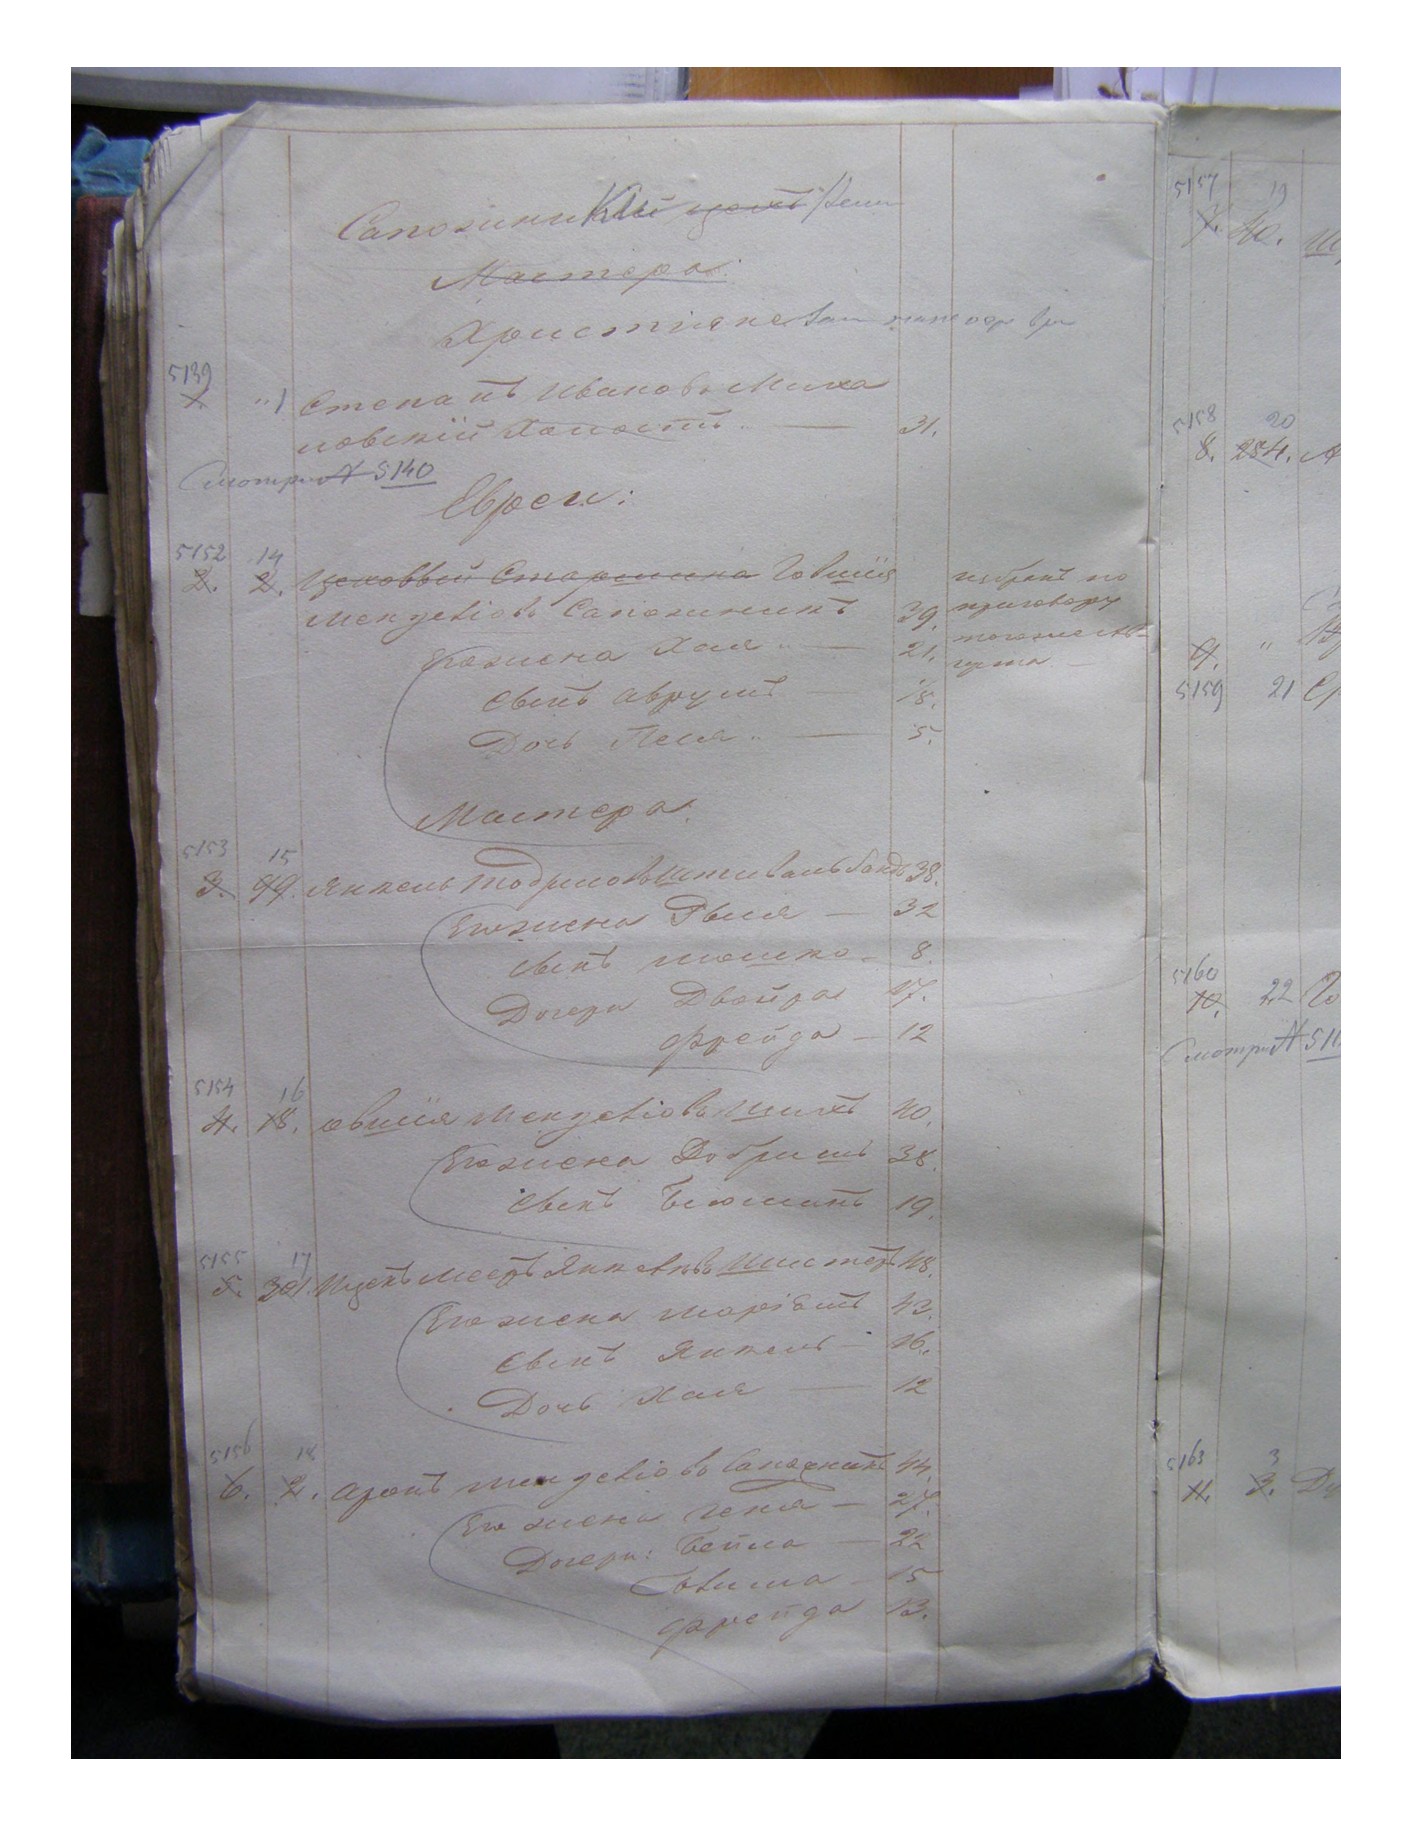 Сапожники цехъ
Мастера:
Христіяне
5139
1. " 1 Степанъ Ивановъ Миха
ловскій Холостъ. — 31.
Смотри № 5140
Евреи:
5152 14
2. 2. Цеховый Старшина Іовшія избранъ по
Менделіовъ Сапожникъ 39. приговору
Его жена Хая .. — 21.
Сынъ Аврумъ — 18.
Дочь Песя .. — 5.
Мастера.
5153 15
3. 99. Янкель Тодрисовъ Штивельбандъ 38.
Его жена Рыся — 32
Сынъ Мошко — 8.
Дочери Двойра 17.
Фрейда — 12
5154 16
4. 18. Овшія Менделіовъ Шихъ 40.
Его жена Добришъ 38.
Сынъ Беюминъ 19.
5155 17
5. 301. Ицекъ Мееръ Янкелевъ Шистеръ 48.
Его жена Маріямъ 43.
Сынъ Янкель — 16.
Дочь Хая — 12
5156 18
6. 2. Аронъ Менделіовъ Сапожникъ 44.
Его жена Геня — 27.
Дочери: Бейла — 22
— 15
Фрейда 13.
5157 19
7. 40.
5158 20
8. 254.
9. "
5159 21
5160
10. 22
Смотри №
5163 3
11. 3.